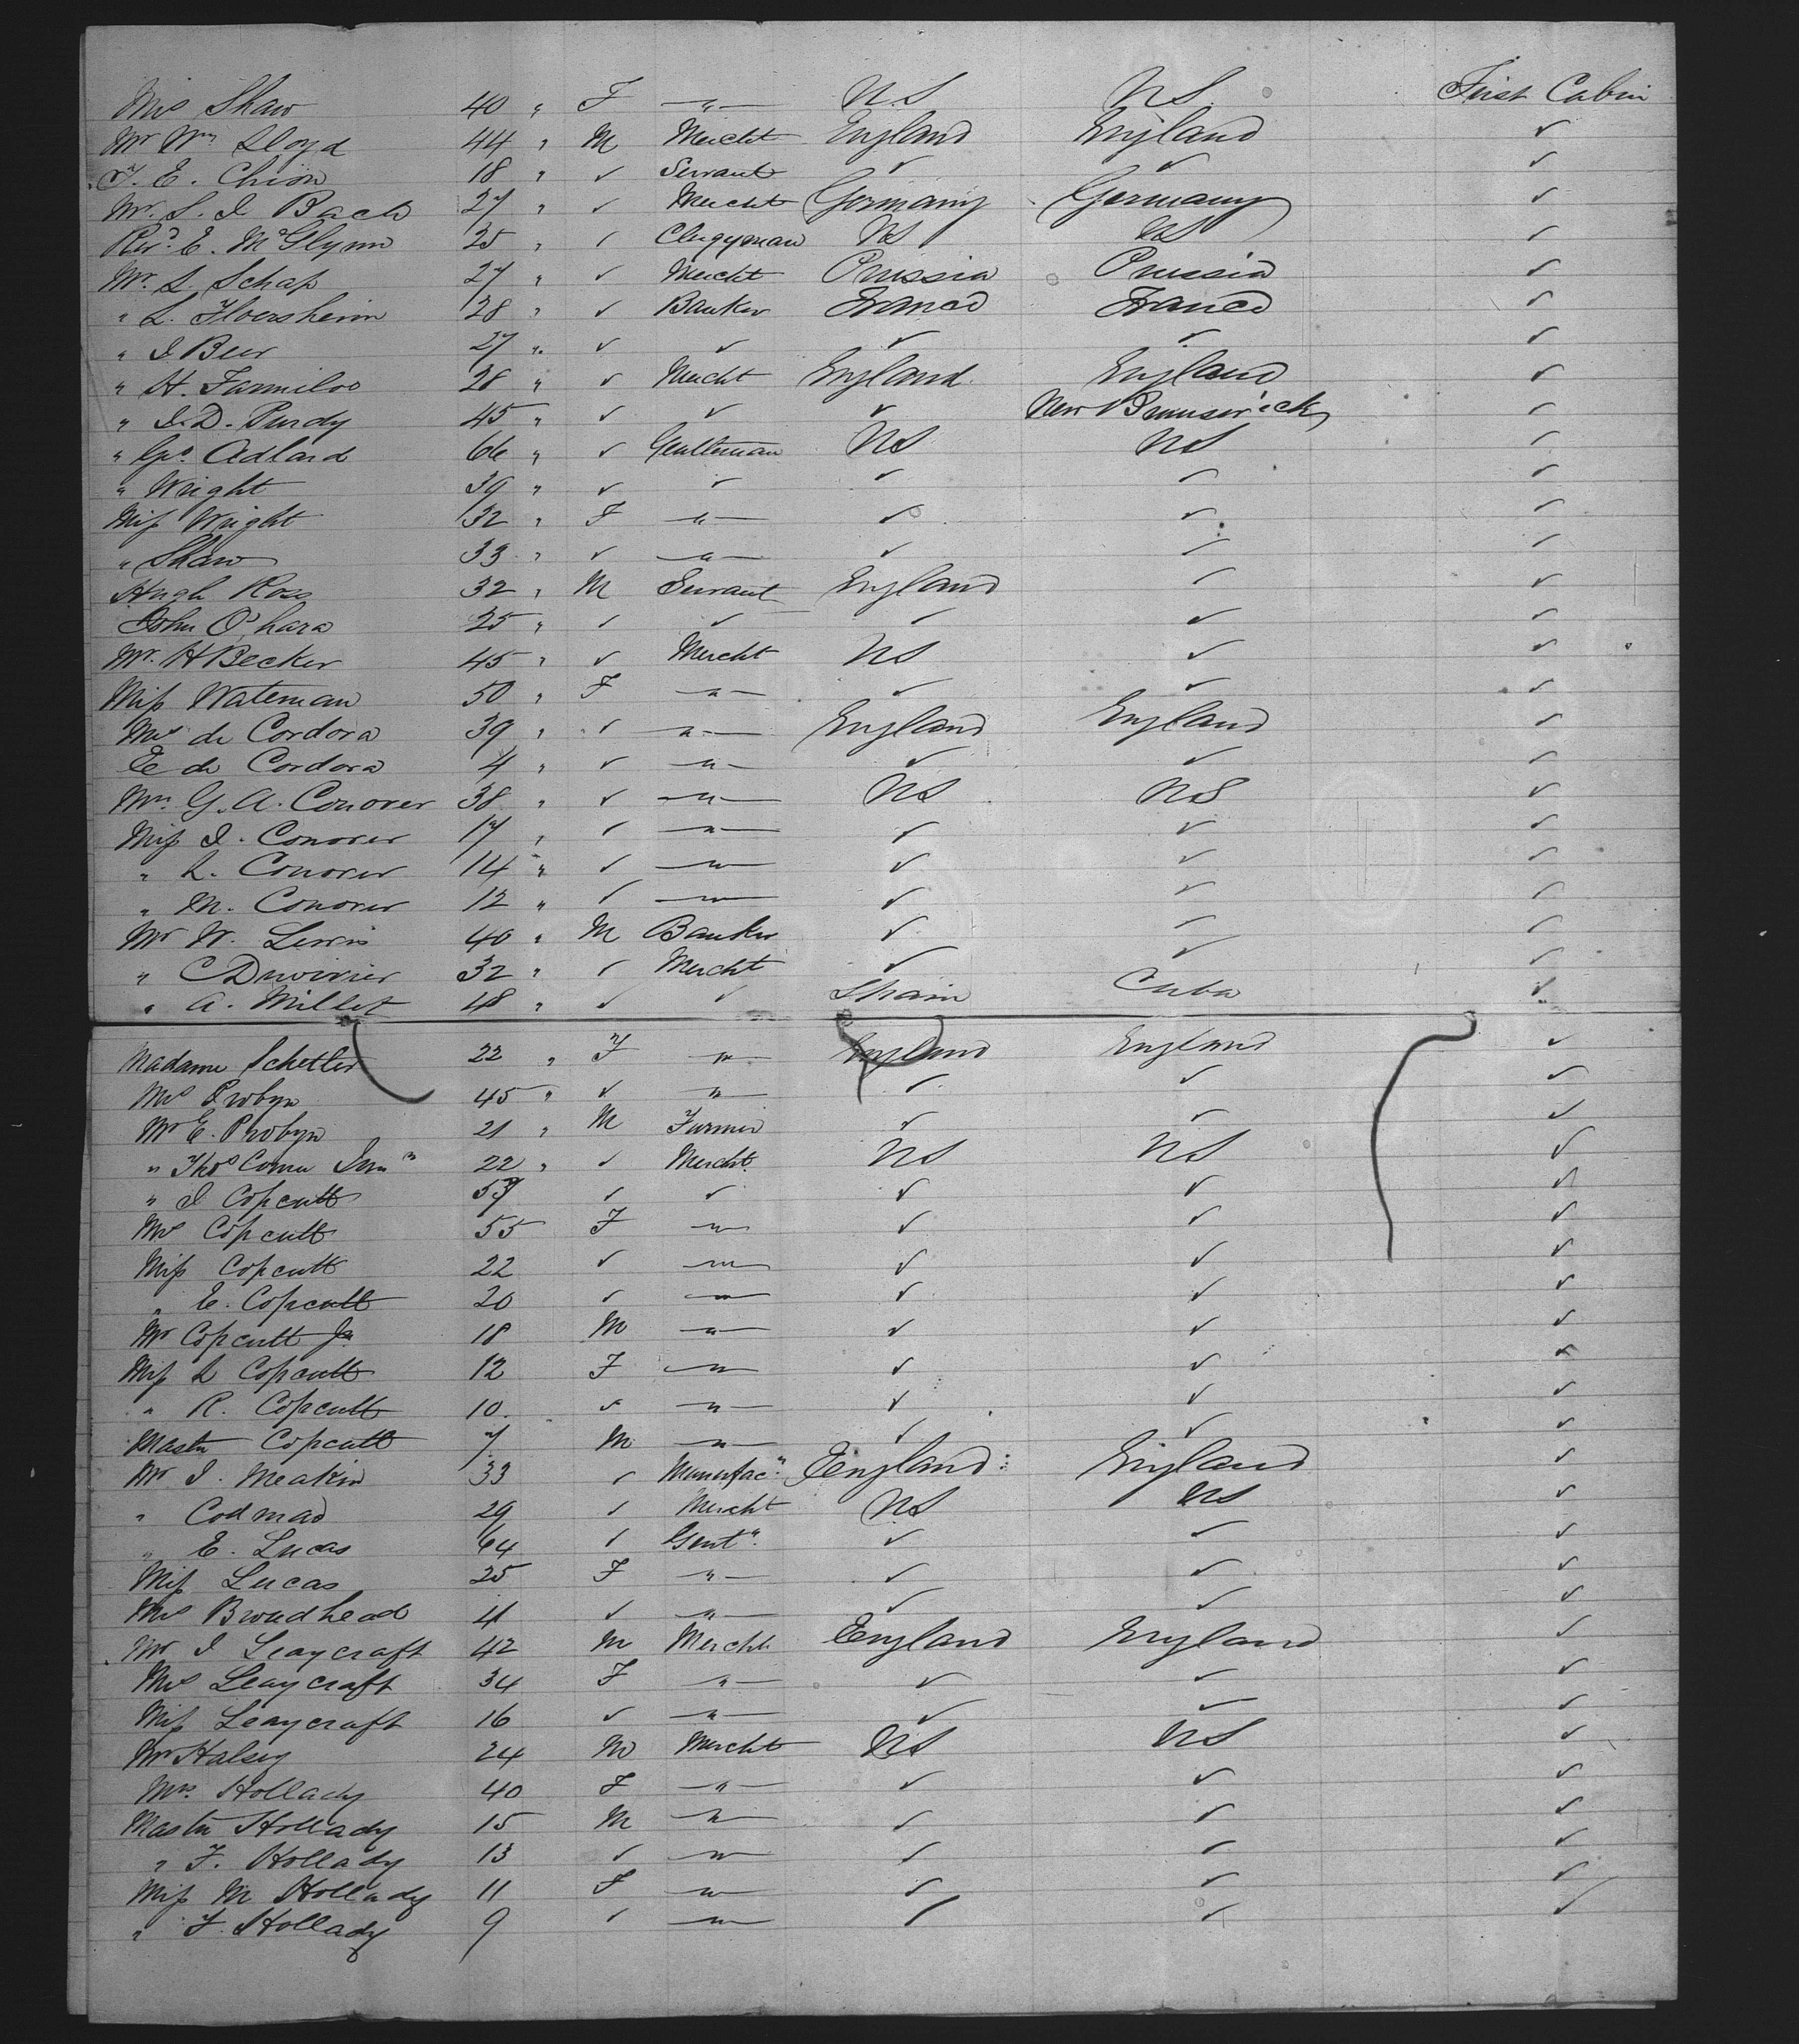 Mrs Shaw 40 " F — " — U.S U.S. First Cabin
Mr Wm Lloyd 44 " M Mercht England England ✓
T. E. Chion 18 " ✓ Servant ✓ ✓ ✓
Mr. S. I Bach 27 " ✓ Mercht Germany Germany ✓
Revd. E. McGlynn 25 " ✓ Clergyman US US ✓
Mr. L. Schaps 27 " ✓ Mercht Prussia Prussia ✓
" L. Floersheim 28 " ✓ Banker France France ✓
" I Beer 27 " ✓ ✓ ✓ ✓ ✓
" H. Farmiloe 28 " ✓ Mercht England England ✓
" I. D. Purdy 45 " ✓ ✓ ✓ New Brunswick ✓
" Geo. Adlard 66 " ✓ Gentleman US US ✓
" Wright 39 " ✓ ✓ ✓ ✓ ✓
Miss Wright 32 " F — " — ✓ ✓ ✓
" Shaw 33 " ✓ — " — ✓ ✓ ✓
Hugh Ross 32 " M Servant England ✓ ✓
John O'hara 25 " ✓ ✓ ✓ ✓ ✓
Mr. H Becker 45 " ✓ Mercht US ✓ ✓
Miss Waterman 50 " F — " — ✓ ✓ ✓
Mrs de Cordova 39 " ✓ — " — England England ✓
E de Cordova 4 " ✓ — " — ✓ ✓ ✓
Mrs G. A. Conover 38 " ✓ — " — US US ✓
Miss I. Conover 17 " ✓ — " — ✓ ✓ ✓
" L. Conover 14 " ✓ — " — ✓ ✓ ✓
" M. Conover 12 " ✓ — " — ✓ ✓ ✓
Mr W. Lewis 40 " M Banker ✓ ✓ ✓
" C Duvivier 32 " ✓ Mercht ✓ ✓ ✓
" A. Millet 48 " ✓ ✓ Spain Cuba ✓
Madame Schetler 22 " F — " — England England ✓
Mrs Probyn 45 " ✓ — " — ✓ ✓ ✓
Mr E. Probyn 21 " M Farmer ✓ ✓ ✓
" Thos Junr 22 " ✓ Mercht. US US ✓
" I Copcutt 57 ✓ ✓ ✓ ✓ ✓
Mrs Copcutt 55 F — " — ✓ ✓ ✓
Miss Copcutt 22 ✓ — " — ✓ ✓ ✓
" E. Copcutt 20 ✓ — " — ✓ ✓ ✓
Mr Copcutt Jr. 18 M — " — ✓ ✓ ✓
Miss L Copcutt 12 F — " — ✓ ✓ ✓
" R. Copcutt 10. ✓ — " — ✓ ✓ ✓
Master Copcutt 7 M — " — ✓ ✓ ✓
Mr I. Meakin 33 ✓ Manufac" England England ✓
" Codmad 29 ✓ Mercht US US ✓
" E. Lucas 64 ✓ Gent". ✓ ✓ ✓
Miss Lucas 25 F — " — ✓ ✓ ✓
Mrs Broadhead 41 ✓ — " — ✓ ✓ ✓
Mr I Leaycraft 42 M Mercht England England ✓
Mrs Leaycraft 34 F — " — ✓ ✓ ✓
Miss Leaycraft 16 ✓ — " — ✓ ✓ ✓
Mr Halsey 24 M Mercht US US ✓
Mrs. Hollady 40 F — " — ✓ ✓ ✓
Master Hollady 15 M — " — ✓ ✓ ✓
" F. Hollady 13 ✓ — " — ✓ ✓ ✓
Miss M Hollady 11 F — " — ✓ ✓ ✓
" F. Hollady 9 ✓ — " — ✓ ✓ ✓